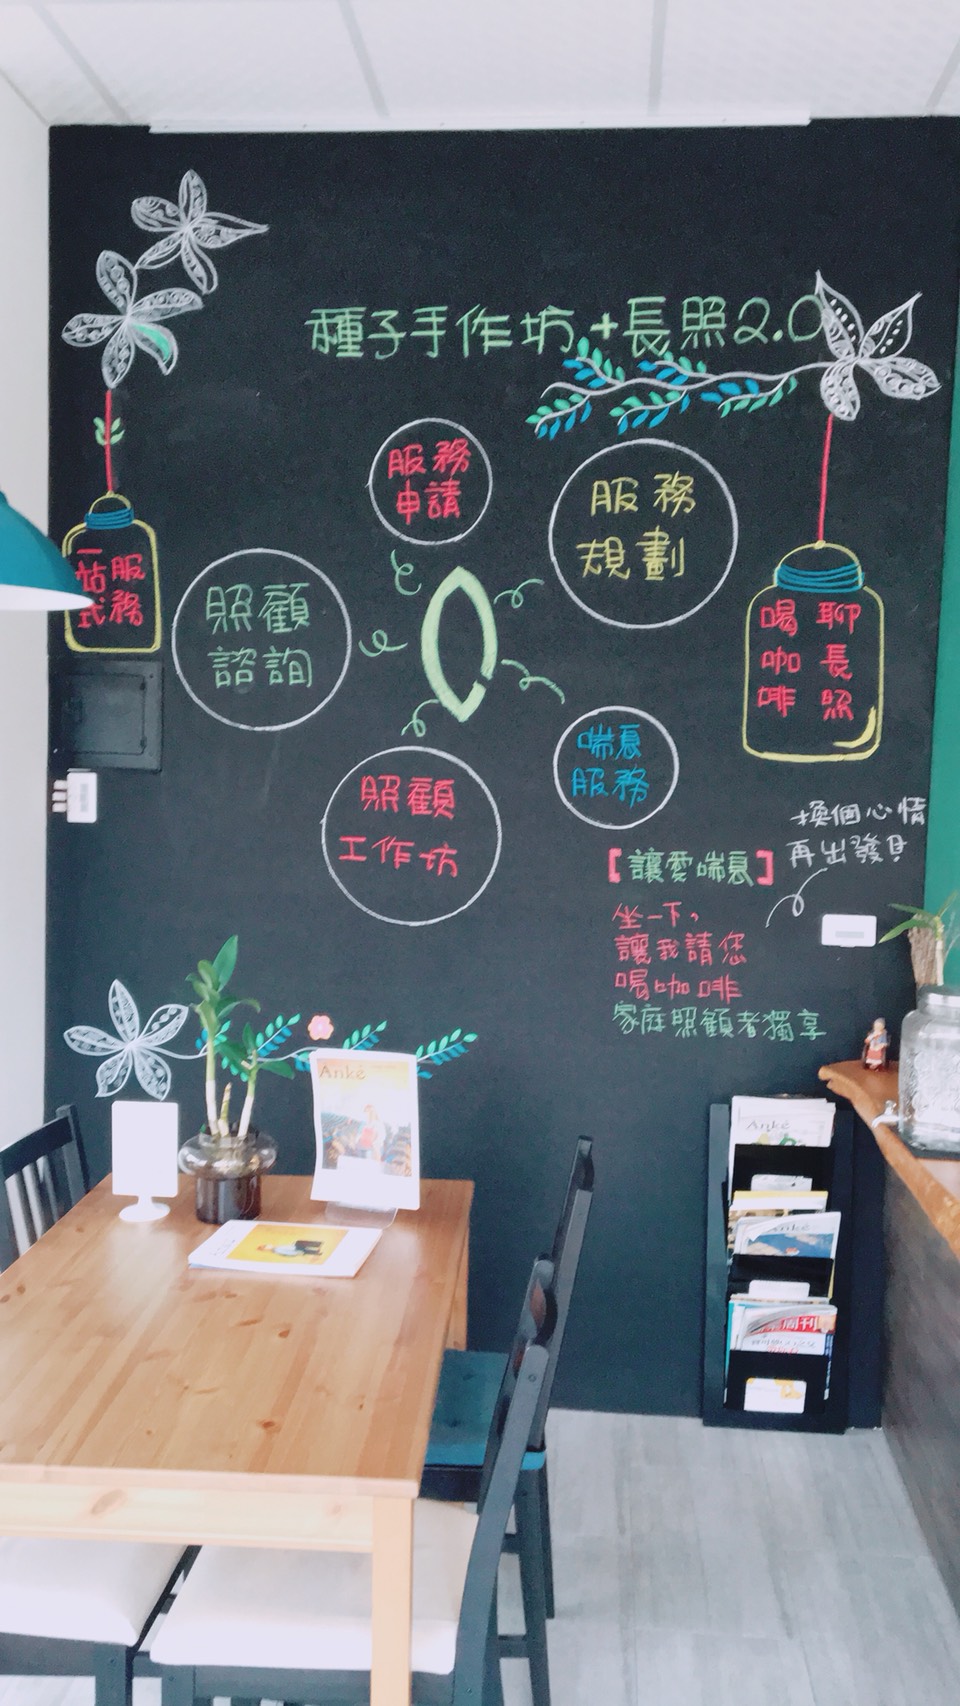 種子手作坊+長照2.0
服務
申請
服務
規劃
一站式
服務
照顧
諮詢
聊長照
喝咖啡
喘息
服務
照顧
工作坊
換個心情
再出發
【讓愛喘息】
坐一下,
讓我請您
喝咖啡
家庭照顧者獨享
Anké
Anké
Anké
周刊